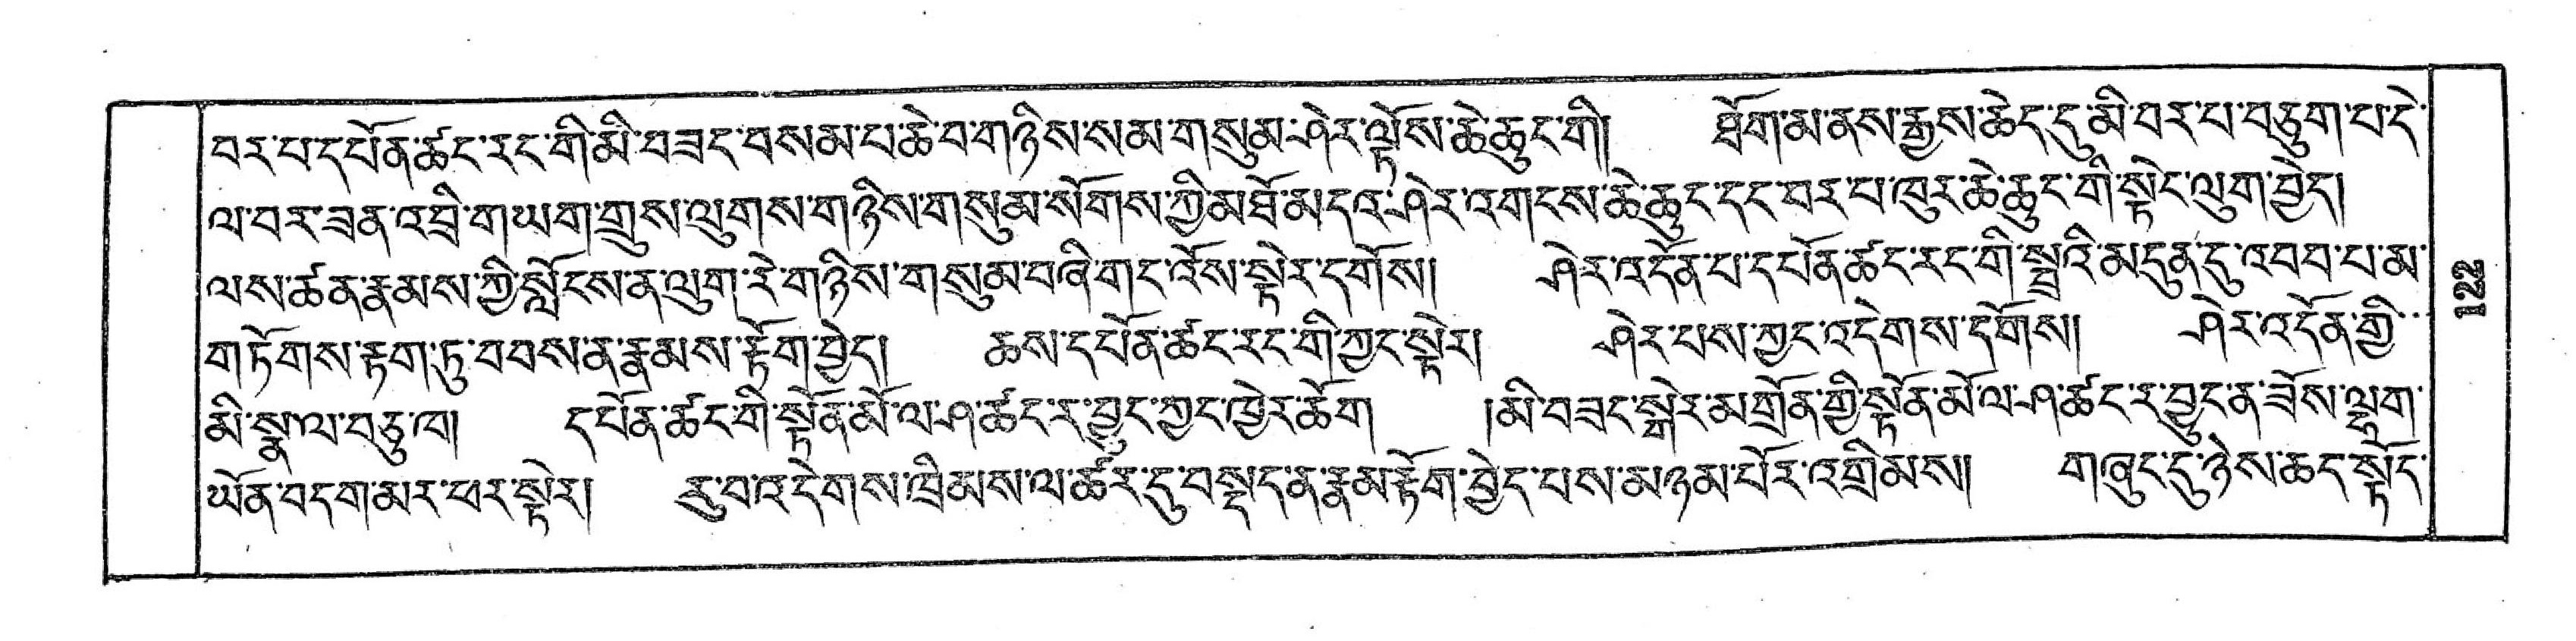 བར་པ་དཔོན་ཚང་རང་གི་མི་བཟང་བསམ་པ་ཆེ་བ་གཉིས་སམ་གསུམ་ཤེར་ལྟོས་ཆེ་ཆུང་གི།  ཐོག་མ་ནས་རྒྱས་ཆེད་དུ་མི་བར་པ་བཅུག་པ་དེ་
ལ་བར་ཟན་འབྲི་གཡག་གྲུས་ལུགས་གཉིས་གསུམ་སོགས་ཀྱི་མཐོ་མདའ་ཤེར་འགངས་ཆེ་ཆུང་དང་བར་པ་ཁུར་ཆེ་ཆུང་གི་སྟེང་ལུག་བྱེད།
ལས་ཚན་རྣམས་ཀྱི་སློངས་ན་ལུག་རེ་གཉིས་གསུམ་བཞི་གང་འོས་སྟེར་དགོས།  ཤེར་འདོན་པ་དཔོན་ཚང་རང་གི་སྦྲའི་མདུན་དུ་འབབ་པ་མ་
གཏོགས་རྟག་ཏུ་བབས་ན་རྣམས་རྟོག་བྱེད།  ཆས་དཔོན་ཚང་རང་གི་ཀྱང་སྟེར།  ཤེར་པས་ཀྱང་འདེགས་དགོས།  ཤེར་འདོན་གྱི་
མི་སྣ་ལ་བཅུ་ཁ།  དཔོན་ཚང་གི་སྟོན་མོ་ལ་ཤ་ཚང་ར་བྱུང་ཀྱང་ཁྱེར་ཆོག  །མི་བཟང་སྒེར་མགྲོན་གྱི་སྟོན་མོ་ལ་ཤ་ཚང་ར་བྱུང་ན་ཟོས་ལྷག་
ཡོན་བདག་མར་ཕར་སྟེར།  རུ་བ་འདེགས་ཁྲིམས་ལ་ཚར་དུ་བསྡད་ན་རྣམ་རྟོག་བྱེད་པས་མ་ཉམ་པོར་འགྲིམས།  གཞུང་དུ་ཉེས་ཆད་སྟོད་